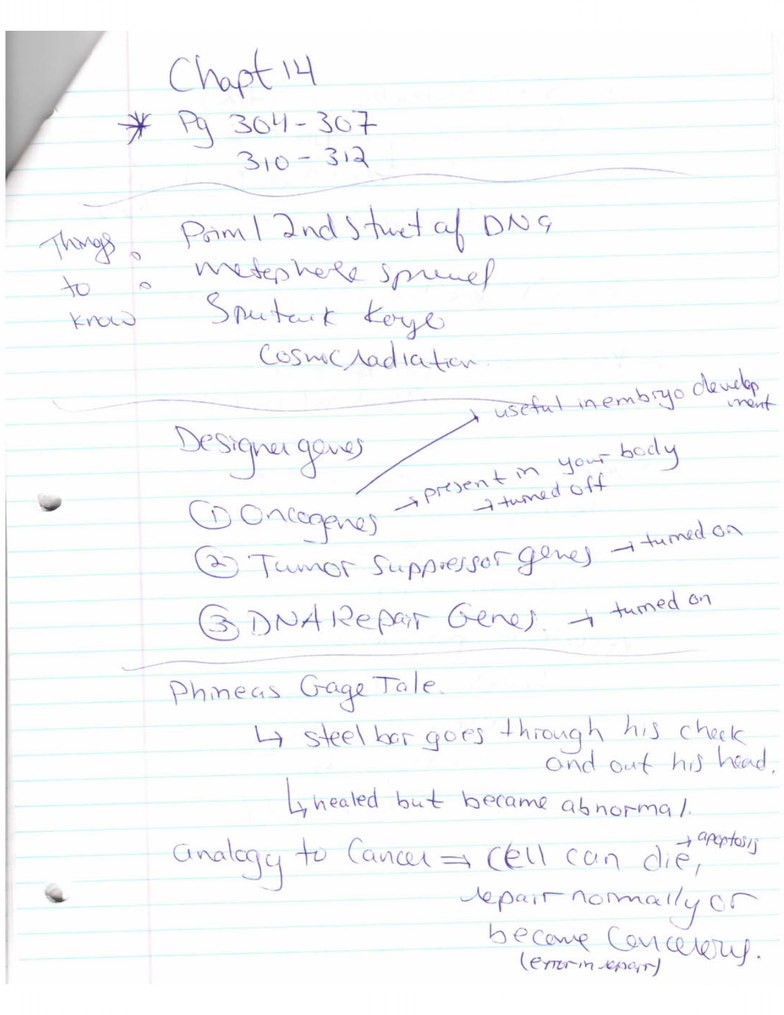 Chapt 14
* Pg 304-307
310-312
Things to know
Prim / 2nd struct of DNA
spread
Sputnik
Cosmic radiation
Designer genes
① Oncogenes → present in your body
→ turned off
→ useful in embryo development
② Tumor Suppressor genes → turned on
③ DNA Repair Genes. → turned on
Phineas Gage Tale.
↳ steel bar goes through his cheek
and out his head.
↳ healed but became abnormal.
analogy to Cancer ⇒ cell can die, → apoptosis
repair normally or
become Cancerous.
(error in repair)